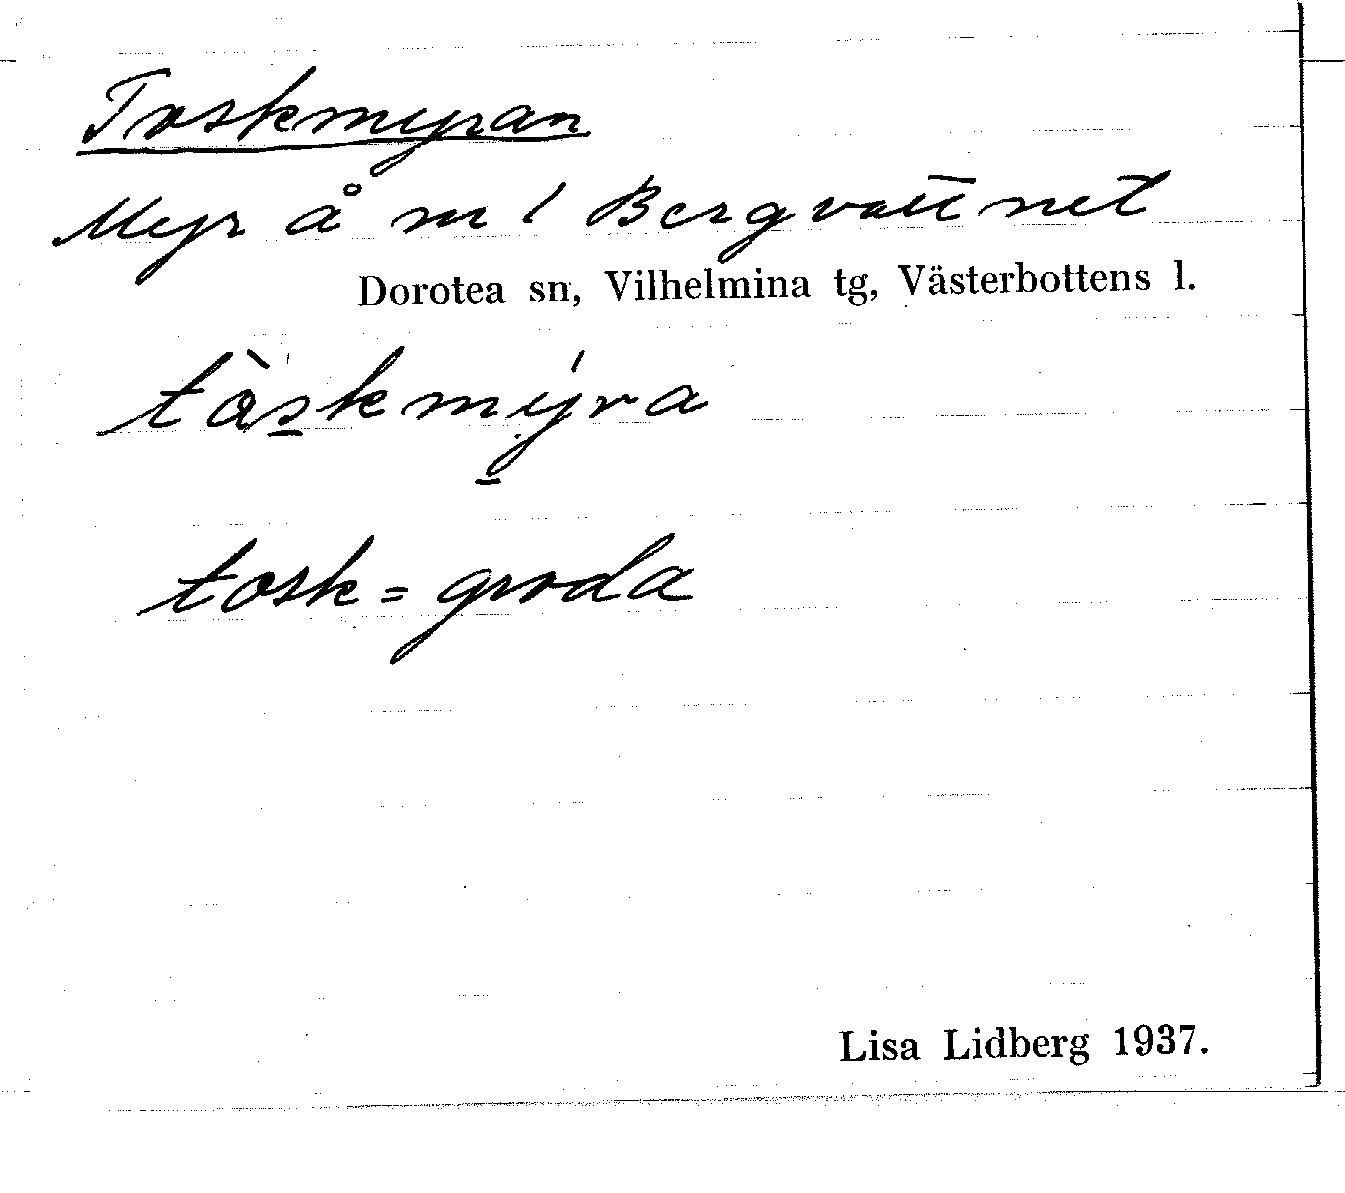 Toskmyran
Myr å nr 1 Bergvattnet
Dorotea sn, Vilhelmina tg, Västerbottens l.
tòskmýra
tosk = groda
Lisa Lidberg 1937.